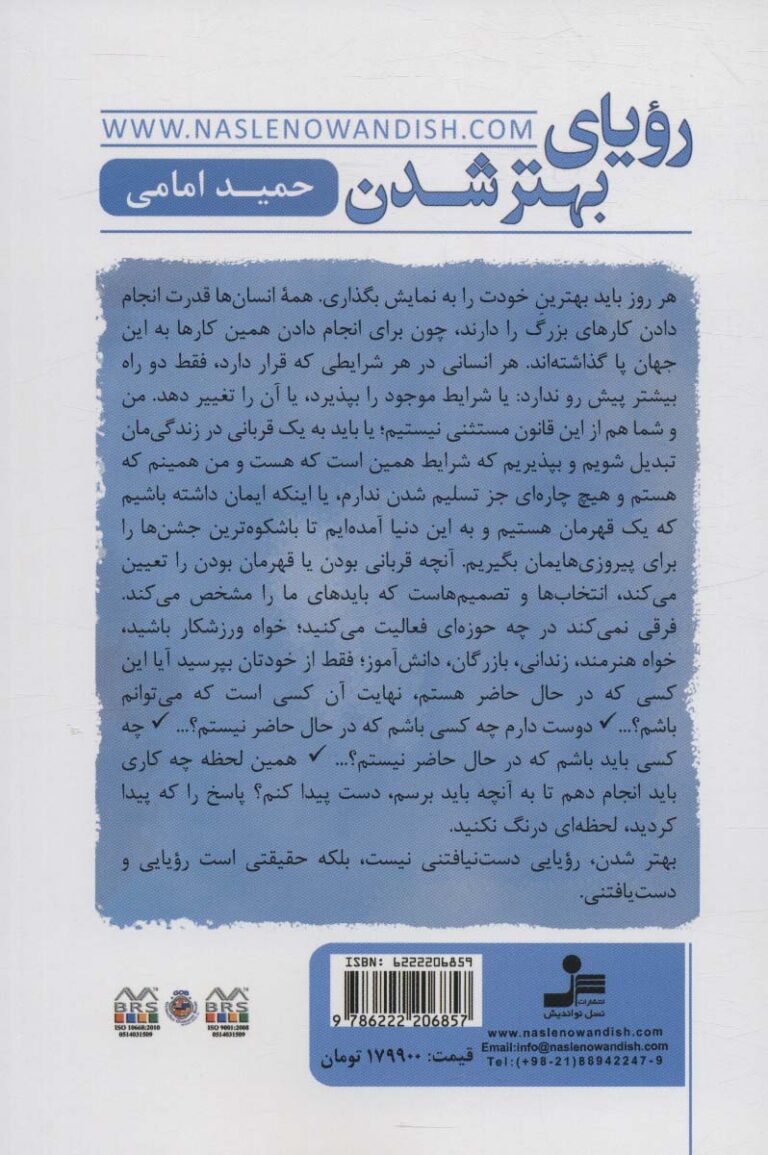 رؤیای
بهتر شدن
WWW.NASLENOWANDISH.COM
حمید امامی
هر روز باید بهترینِ خودت را به نمایش بگذاری. همهٔ انسان‌ها قدرت انجام
دادن کارهای بزرگ را دارند، چون برای انجام دادن همین کارها به این
جهان پا گذاشته‌اند. هر انسانی در هر شرایطی که قرار دارد، فقط دو راه
بیشتر پیش رو ندارد: یا شرایط موجود را بپذیرد، یا آن را تغییر دهد. من
و شما هم از این قانون مستثنی نیستیم؛ یا باید به یک قربانی در زندگی‌مان
تبدیل شویم و بپذیریم که شرایط همین است که هست و من همینم که
هستم و هیچ چاره‌ای جز تسلیم شدن ندارم، یا اینکه ایمان داشته باشیم
که یک قهرمان هستیم و به این دنیا آمده‌ایم تا باشکوه‌ترین جشن‌ها را
برای پیروزی‌هایمان بگیریم. آنچه قربانی بودن یا قهرمان بودن را تعیین
می‌کند، انتخاب‌ها و تصمیم‌هاست که بایدهای ما را مشخص می‌کند.
فرقی نمی‌کند در چه حوزه‌ای فعالیت می‌کنید؛ خواه ورزشکار باشید،
خواه هنرمند، زندانی، بازرگان، دانش‌آموز؛ فقط از خودتان بپرسید آیا این
کسی که در حال حاضر هستم، نهایت آن کسی است که می‌توانم
باشم؟... ✓ دوست دارم چه کسی باشم که در حال حاضر نیستم؟... ✓ چه
کسی باید باشم که در حال حاضر نیستم؟... ✓ همین لحظه چه کاری
باید انجام دهم تا به آنچه باید برسم، دست پیدا کنم؟ پاسخ را که پیدا
کردید، لحظه‌ای درنگ نکنید.
بهتر شدن، رؤیایی دست‌نیافتنی نیست، بلکه حقیقتی است رؤیایی و
دست‌یافتنی.
ISBN: 6222206859
9 786222 206857
قیمت: ۱۷۹۹۰۰ تومان
انتشارات
نسل نواندیش
www.naslenowandish.com
Email:info@naslenowandish.com
Tel:(+98-21)88942247-9
BRS
ISO 10668:2010
0514031509
GOB
BRS
ISO 9001:2008
0514031509